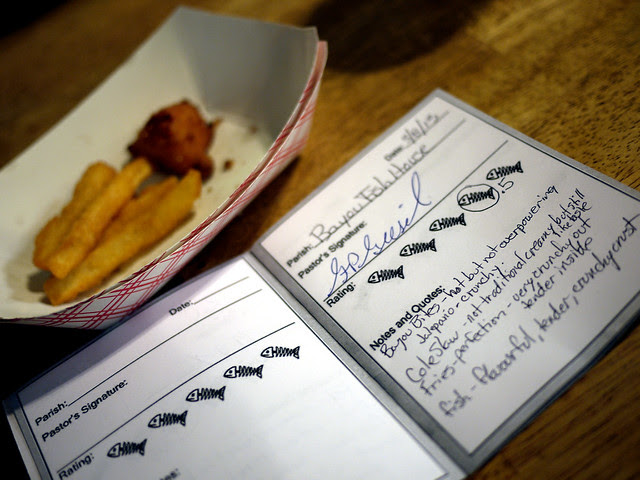 Date: 3/11/13
Parish: Bayou Fish House
Pastor's Signature:
Rating:
.5
Notes and Quotes:
Bayou Bites - hot but not overpowering
Jalapeño - crunchy
Cole Slaw - not traditional creamy but still
Fries - perfection - very crunchy out
tender inside
fish - flavorful, tender, crunchy crust
Date:
Parish:
Pastor's Signature:
Rating: